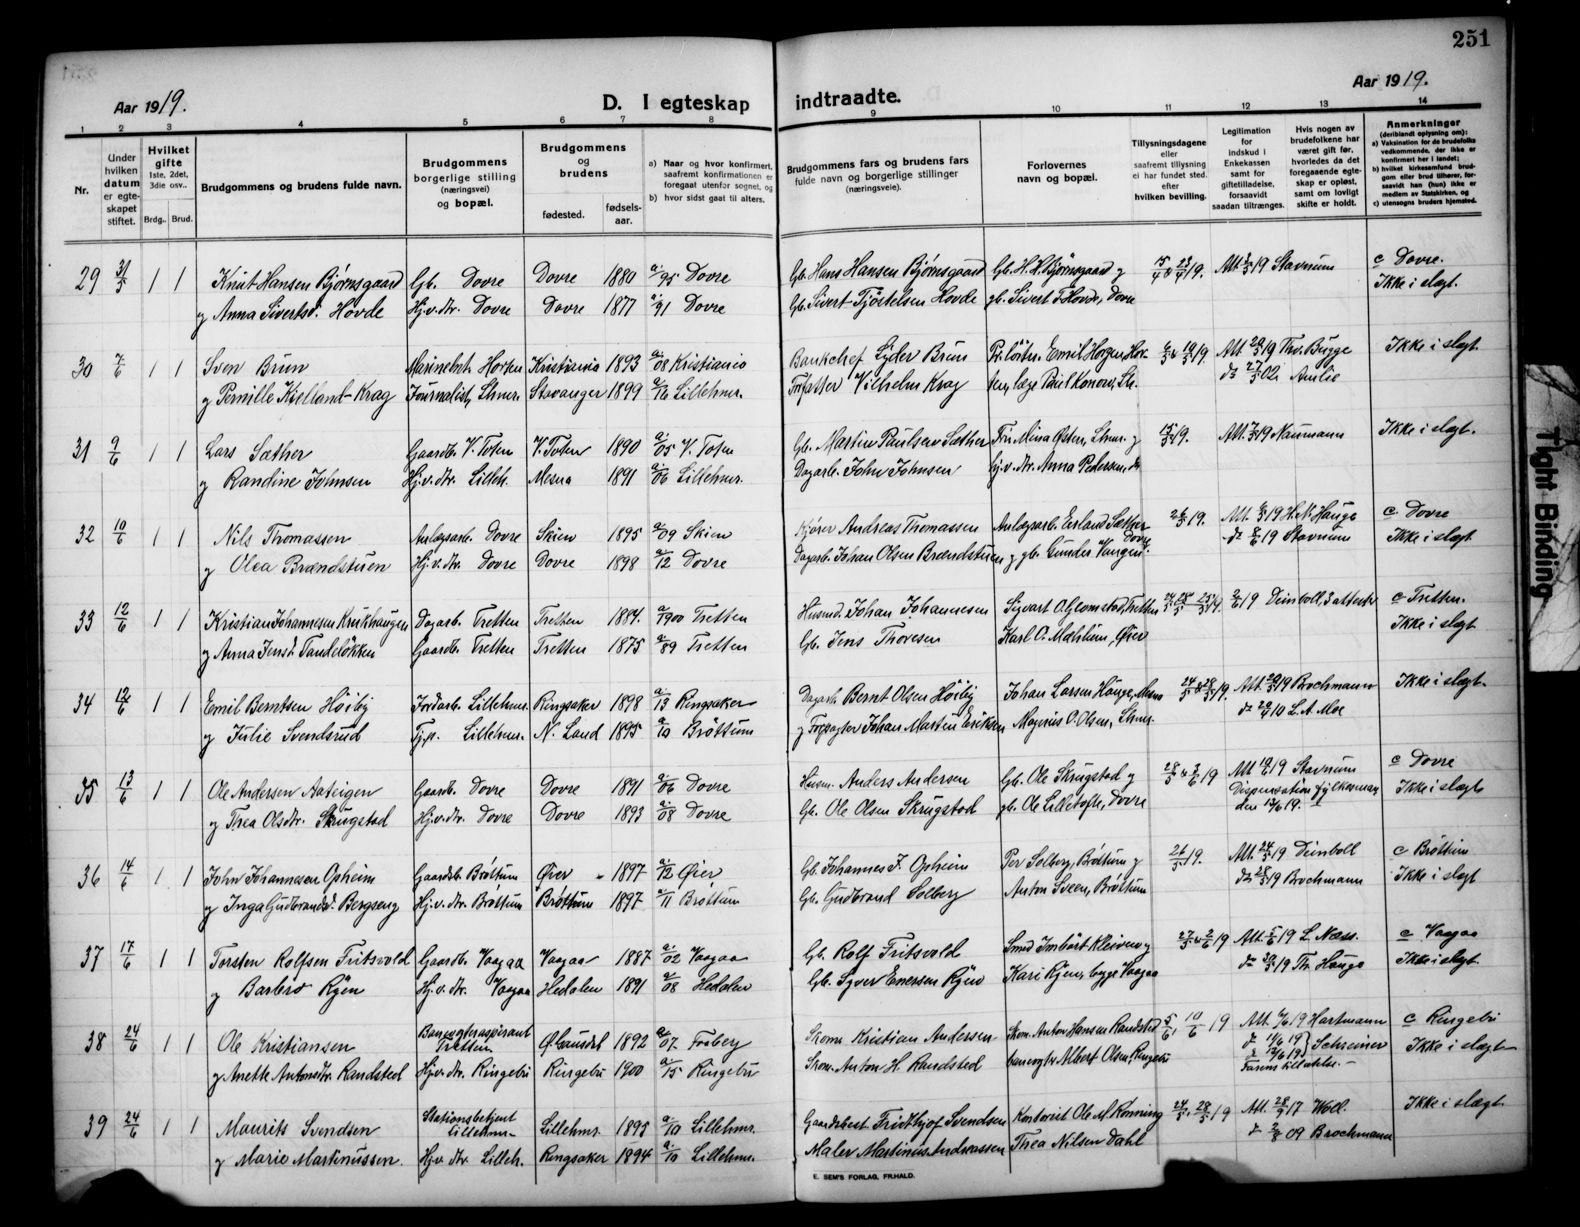 251
Aar 1919.
D. I egteskap indtraadte.
Aar 1919.
1 2 3 4 5 6 7 8 9 10 11 12 13 14
Nr.
Under hvilken datum er egteskapet stiftet.
Hvilket gifte
1ste, 2det, 3die osv..
Brdg.. Brud.
Brudgommens og brudens fulde navn.
Brudgommens borgerlige stilling (næringsvei) og bopæl.
Brudgommens og brudens
fødested. fødselsaar.
a) Naar og hvor konfirmert, saafremt konfirmationen er foregaat utenfor sognet, og
b) hvor sidst gaat til alters.
Brudgommens fars og brudens fars fulde navn og borgerlige stillinger (næringsveie).
Forlovernes navn og bopæl.
Tillysningsdagene eller saafremt tillysning ei har fundet sted. efter hvilken bevilling.
Legitimation for indskud i Enkekassen samt for giftetilladelse, forsaavidt saadan tiltrænges.
Hvis nogen av brudefolkene har været gift før, hvorledes da det foregaaende egteskap er opløst, samt om lovligt skifte er holdt.
Anmerkninger
(deriblandt oplysning om):
a) Vaksination for de brudefolks vedkommende, der ikke er konfirmert her i landet;
b) hvilket kirkesamfund brudgom eller brud tilhører, forsaavidt han (hun) ikke er medlem av Statskirken, og
c) utensogns bruders hjemsted.
29 31/5 1 1 Knut Hansen Bjørnsgaard Gb. Dovre Dovre 1880 a. 95 Dovre Gb. Hans Hansen Bjørnsgaard Gb. H. H. Bjørnsgaard g Att. 19 Stavnum c Dovre.
g Anna Sivertsd. Hovde Hj.v.dtr. Dovre Dovre 1877 a. 91 Dovre Gb. Sivert Tjøstelsen Hovde gb. Sivert T. Hovde, Dovre Ikke i slegt.
30 7/6 1 1 Sven Brun Marinebet. Horten Kristiania 1893 a. 08 Kristiania Bankchef Lyder Brun Pr.løitn. Emil Horgen, Hor- Att. 19 Thv. Bugge Ikke i slegt
g Pernille Kielland-Krag Journalist, Lhmr. Stavanger 1899 a/16 Lillehmr. Forfatter Vilhelm Krag ten, læge Paul Konow, Lh.
31 9/6 1 1 Lars Sæther Gaardbr. V. Toten V. Toten 1890 a. 05 V. Toten Gb. Martin Paulsen Sæther Frk. Mina Østen, Lhmr. g 19. Att. 19 Naumann Ikke i slegt.
g Randine Johnsen Hj.v.dtr. Lilleh. Mesna 1891 a/06 Lillehmr. Dagarb. John Johnsen hj.v.dtr. Anna Pedersen, do
32 10/6 1 1 Nils Thomassen Anlægsarb. Dovre Skien 1895 a/09 Skien Kjører Andreas Thomassen Anlægsarb. Erland Sæther 26/5 19. Att. 19 H. N. Hauge c Dovre
g Olea Brændstuen Hj.v.dtr. Dovre Dovre 1898 a/12 Dovre Dagarb. Johan Olsen Brændstuen g gb. Gunder Vangen. Dovre do 19 Stavnum Ikke i slegt
33 12/6 1 1 Kristian Johannesen Krukhaugen Dagarb. Tretten Tretten 1884. a/1900 Tretten Husmd. Johan Johannesen Sigvart O. Glomstad, Tretten 19 Deinboll, 3 attester c Tretten.
g Anna Jensd. Tandeløkken Gaardb. Tretten Tretten 1875 a/89 Tretten Gb. Jens Thoresen Karl O. Mæhlum, Øier Ikke i slegt
34 12/6 1 1 Emil Berntsen Høiby Jordarb. Lillehmr. Ringsaker 1898 a/13 Ringsaker Dagarb. Bernt Olsen Høiby Johan Larsen Hauge, Mesna 24/5 & 28/5 19 Att. 19 Brochmann Ikke i slegt.
g Julie Svendsrud Tj.p. Lillehmr. N. Land 1895 a/10 Brøttum g Forpagter Johan Martin Eriksen Magnus O. Olsen, Lhmr. do 10 L. A. Moe
35 13/6 1 1 Ole Andersen Aateigen Gaardb. Dovre Dovre 1891 a/06 Dovre Husm. Anders Andersen Gb. Ole Skrugstad g 28/5 & 3/6 19 Att. 19 Stavnum c Dovre
g Thea Olsdtr. Skrugstad Hj.v.dtr. Dovre Dovre 1893 a/08 Dovre Gb. Ole Olsen Skrugstad gb. Ole Lilletofte, Dovre Dispensation fylkesmann den 13/6 19. Ikke i slegt
36 14/6 1 1 John Johannesen Opheim Gaardb. Brøttum Øier 1897 a./12 Øier Gb. Johannes J. Opheim Per Solberg, Brøttum g 26/5 19. Att. 24/5 19 Deinboll c Brøttum
g Inga Gudbrandsd. Bergseng Hj.v.dtr. Brøttum Brøttum 1897 a/11 Brøttum Gb. Gudbrand Solberg Anton Sveen, Brøttum do 19 Brochmann Ikke i slegt
37 17/6 1 1 Torsten Rolfsen Fritsvold Gaardb. Vaagaa Vaagaa 1887 a. 02 Vaagaa Gb. Rolf Fritsvold Smed Imbørt Kleiven g 27/5 & 2/6 19 Att. 5/6 19 L. Næss. c Vaagaa
g Barbro Ryen Hj.v.dtr. Vaagaa Hedalen 1891 a/08 Hedalen Gb. Syver Enersen Ryen Kari Ryen, begge Vaagaa do 19 Th. Hauge Ikke i slegt.
38 24/6 1 1 Ole Kristiansen Banevogteraspirant Tretten Ø. Gausdal 1892 a/07 Faaberg Skom. Kristian Andersen Skom. Anton Hansen Randsted 5/6, 10/6 19 Att. 19 Hartmann c Ringebu
g Anette Antonsdtr. Randsted Hj.v.dtr. Ringebu Ringebu 1900 a/15 Ringebu Skom. Anton H. Randsted banevogter Albert Olsen, Ringebu 19 } Schreiner Farens tilladelse.- Ikke i slegt
39 24/6 1 1 Maurits Svendsen Stationsbetjent Lillehmr Lillehmr. 1895 a./10 Lillehmr. Gaardsbest. Fridtjof Svendsen Kontorist Ole M. Rønning 24/5, 28/5 19 Att. 28/9 17 Woll. Ikke i slegt.
g Marie Martinussen. Hj.v.dtr. Lilleh. Ringsaker 1894 a./10 Lillehmr. Maler Martinus Andreassen Thea Nilsen Dahl do 09 Brochmann
E. SEM'S FORLAG, FR.HALD.
Tight Binding